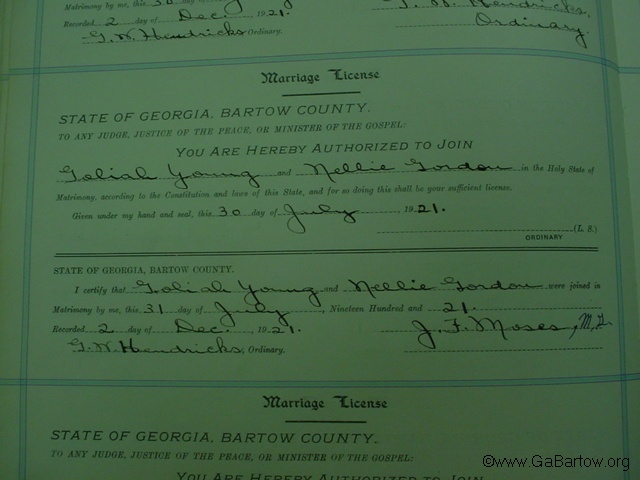 Matrimony by me, this 30 day of July 1921.
Recorded 2 day of Dec. 1921.
G. W. Hendricks Ordinary.
G. W. Hendricks,
Ordinary.
Marriage License
STATE OF GEORGIA, BARTOW COUNTY.
TO ANY JUDGE, JUSTICE OF THE PEACE, OR MINISTER OF THE GOSPEL:
YOU ARE HEREBY AUTHORIZED TO JOIN
Goliah Young and Nellie Gordon in the Holy State of
Matrimony, according to the Constitution and laws of this State, and for so doing this shall be your sufficient license.
Given under my hand and seal, this 30 day of July 1921.
(L. S.)
ORDINARY
STATE OF GEORGIA, BARTOW COUNTY.
I certify that Goliah Young and Nellie Gordon were joined in
Matrimony by me, this 31 day of July, Nineteen Hundred and 21.
Recorded 2 day of Dec. , 1921. J. F. Moses, M.G.
G. W. Hendricks, Ordinary.
Marriage License
STATE OF GEORGIA, BARTOW COUNTY.
TO ANY JUDGE, JUSTICE OF THE PEACE, OR MINISTER OF THE GOSPEL:
YOU ARE HEREBY AUTHORIZED TO JOIN
©www.GaBartow.org